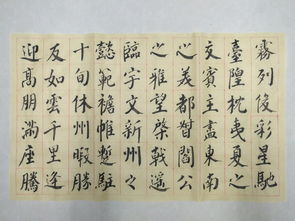 霧列俊彩星馳
臺隍枕夷夏之
交賓主盡東南
之美都督閻公
之雅望棨戟遙
臨宇文新州之
懿範襜帷暫駐
十旬休州暇勝
友如雲千里逢
迎高朋滿座騰